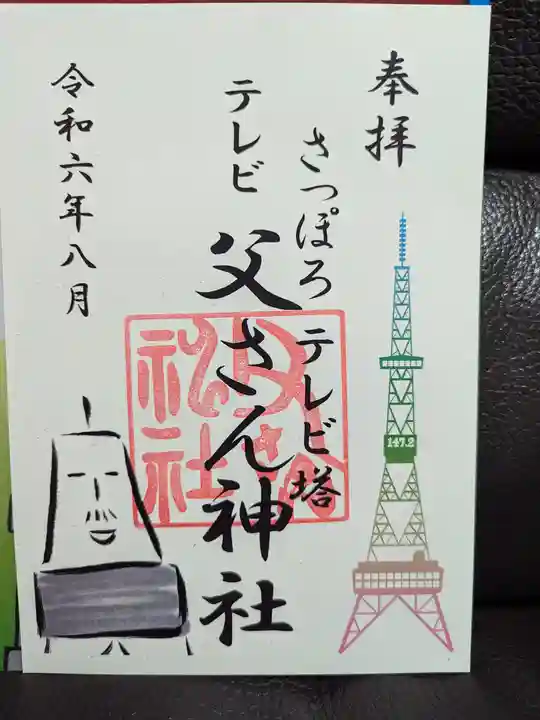 奉拝
さっぽろテレビ塔
テレビ父さん神社
令和六年八月
147.2